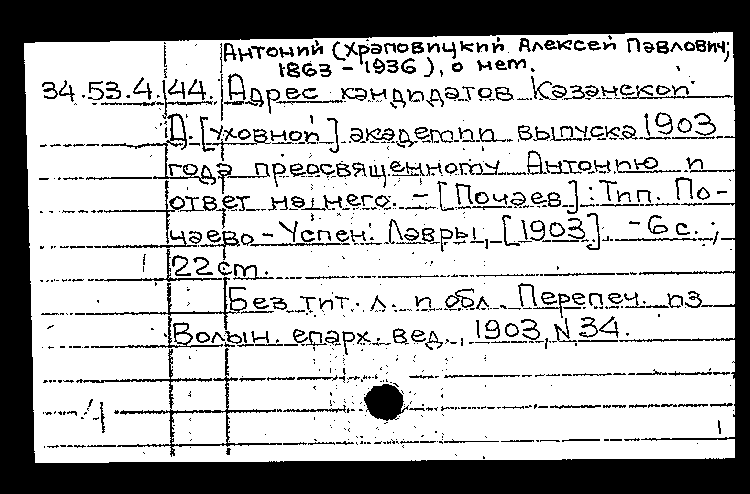 Антоний (Храповицкий Алексей Павлович;
1863 - 1936), о нем.
34.53.4.44. Адрес кандидатов Казанской
Д.[уховной] академии выпуска 1903
года преосвященному Антонию и
ответ на него. - [Почаев]: Тип. По-
чаево - Успен. Лавры, [1903]. - 6 с.;
22 ст.
Без тит. л. и обл. Перепеч. из
Волын. епарх. вед., 1903, N 34.